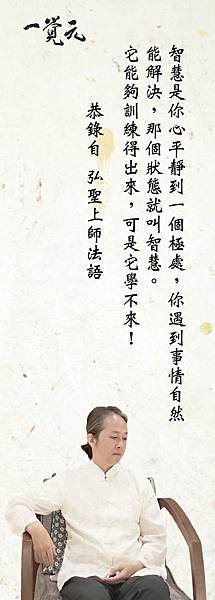 一覺元
智慧是你心平靜到一個極處，你遇到事情自然
能解決，那個狀態就叫智慧。
它能夠訓練得出來，可是它學不來！
恭錄自 弘聖上師法語